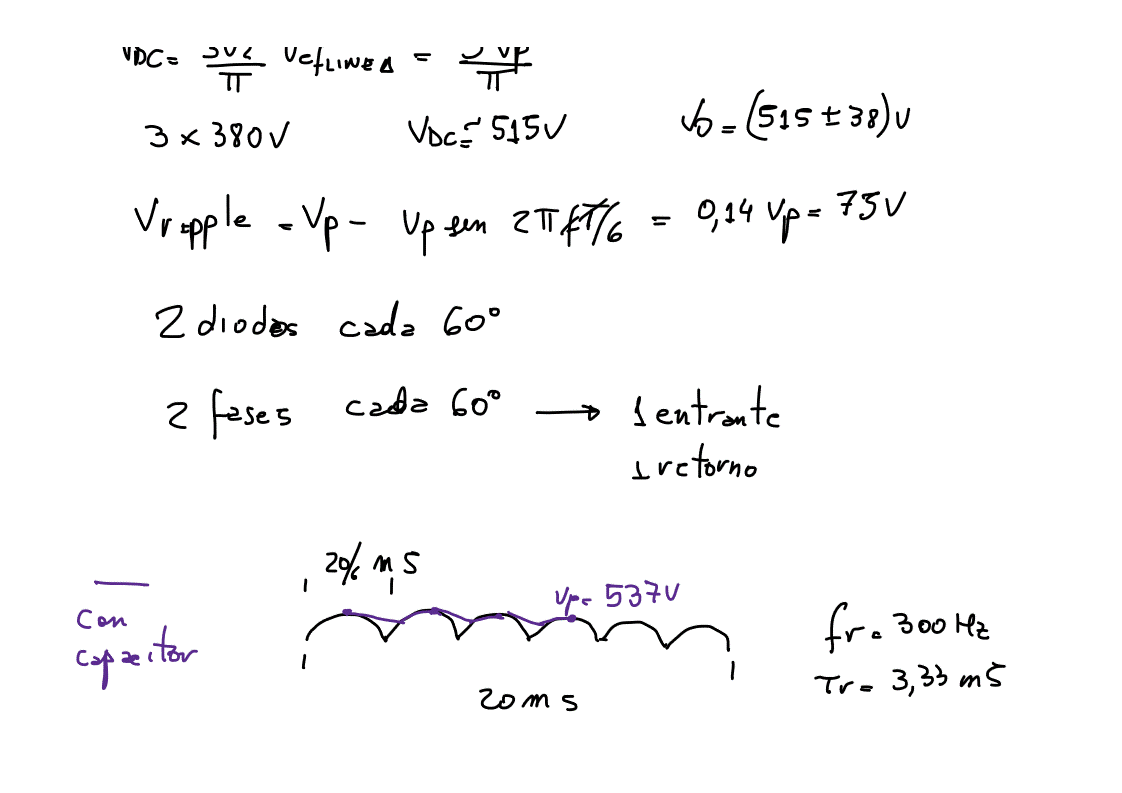 VDC = 3√2/π Vef LINEA = 3 Vp/π
3 x 380V VDC ≃ 515V Vo = (515 ± 38)V
Vripple = Vp - Vp sen 2πfT/6 = 0,14 Vp = 75V
2 diodos cada 60°
2 fases cada 60° → 1 entrante
1 retorno
20/6 mS
Vp = 537V
Con
capacitor
fr = 300 Hz
Tr = 3,33 mS
20 m s